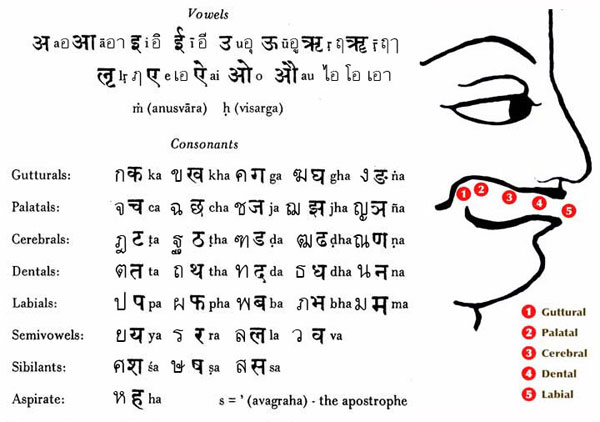 Vowels
अ a อ आ ā อา इ i อิ ई ī อี उ u อุ ऊ ū อู ऋ ṛ ฤ ॠ ṝ ฤๅ
ऌ lṛ ฦ ए e เอ ऐ ai ไอ ओ o โอ औ au เอา
ṁ (anusvāra) ḥ (visarga)
Consonants
Gutturals: ก क ka ข ख kha ค ग ga ฆ घ gha ง ङ ṅa
Palatals: จ च ca ฉ छ cha ช ज ja ฌ झ jha ญ ञ ña
Cerebrals: ฏ ट ṭa ฐ ठ ṭha ฑ ड ḍa ฒ ढ ḍha ณ ण ṇa
Dentals: ต त ta ถ थ tha ท द da ธ ध dha น न na
Labials: ป प pa ผ फ pha พ ब ba ภ भ bha ม म ma
Semivowels: ย य ya ร र ra ล ल la ว व va
Sibilants: ศ श śa ษ ष ṣa ส स sa
Aspirate: ห ह ha s = ' (avagraha) - the apostrophe
1 2 3 4 5
1 Guttural
2 Palatal
3 Cerebral
4 Dental
5 Labial